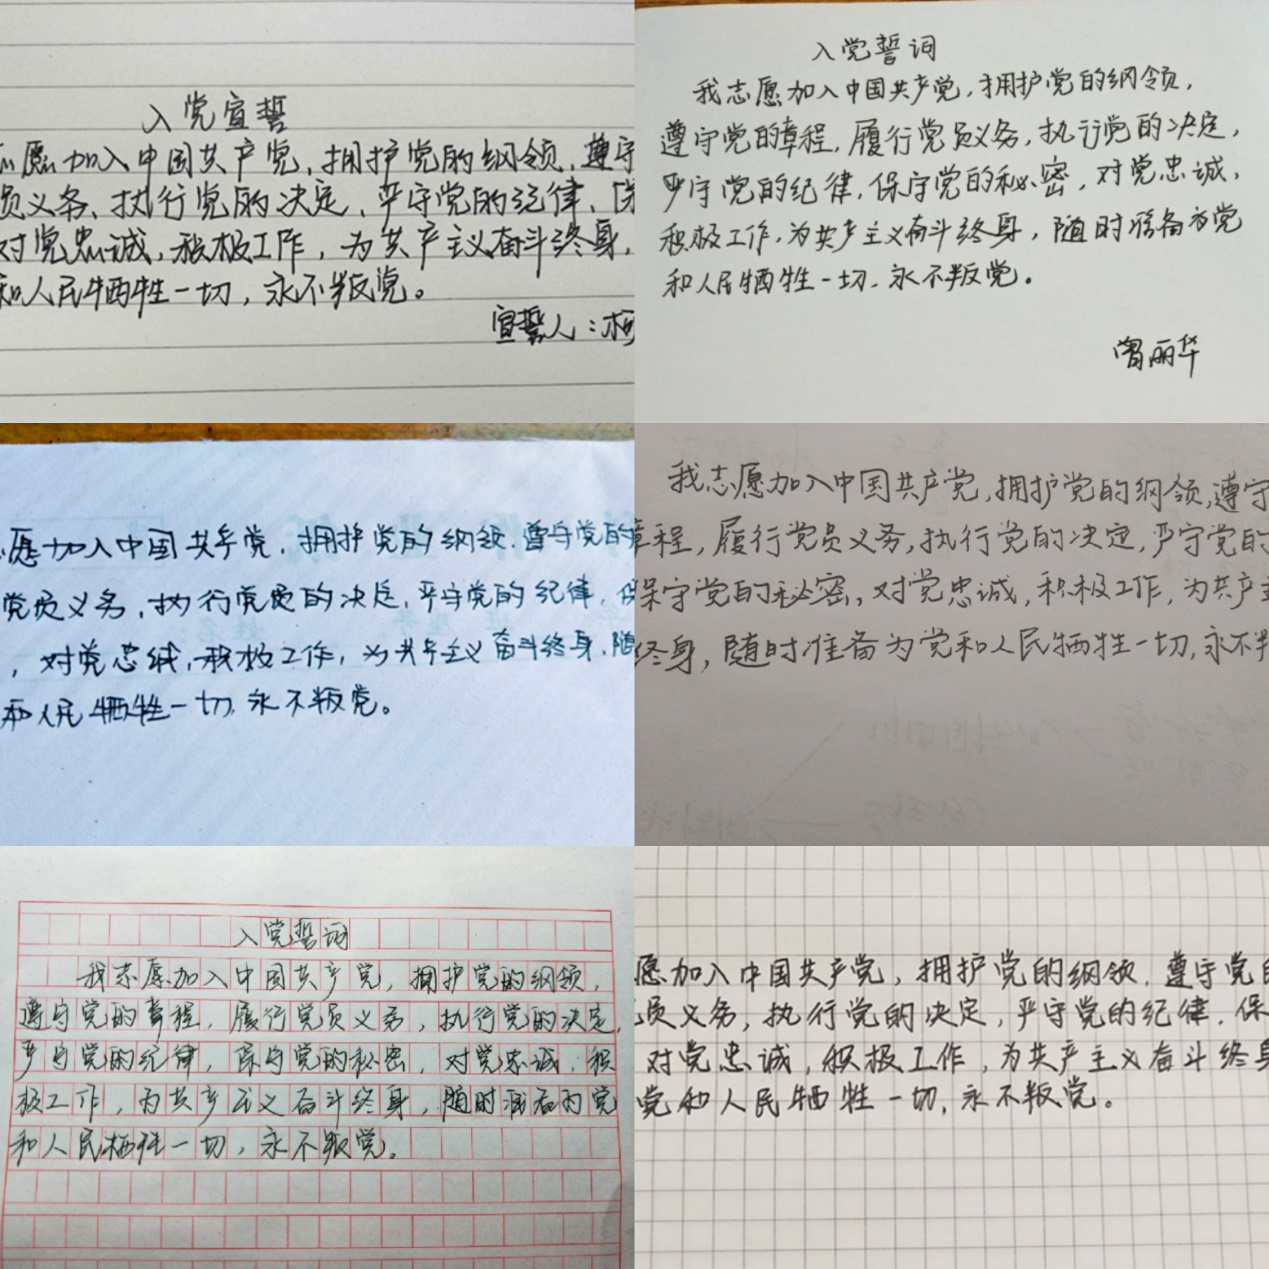 入党宣誓
愿加入中国共产党，拥护党的纲领，遵守
员义务、执行党的决定、严守党的纪律、保
对党忠诚，积极工作，为共产主义奋斗终身，
和人民牺牲一切，永不叛党。
宣誓人：柯
入党誓词
我志愿加入中国共产党，拥护党的纲领，
遵守党的章程，履行党员义务，执行党的决定，
严守党的纪律，保守党的秘密，对党忠诚，
积极工作，为共产主义奋斗终身，随时准备为党
和人民牺牲一切，永不叛党。
曾丽华
愿加入中国共产党，拥护党的纲领，遵守党的
党员义务，执行党的决定，严守党的纪律，保
，对党忠诚，积极工作，为共产主义奋斗终身，随
和人民牺牲一切，永不叛党。
我志愿加入中国共产党，拥护党的纲领，遵守
章程，履行党员义务，执行党的决定，严守党的
保守党的秘密，对党忠诚，积极工作，为共产主
终身，随时准备为党和人民牺牲一切，永不叛
入党誓词
我志愿加入中国共产党，拥护党的纲领，
遵守党的章程，履行党员义务，执行党的决定，
严守党的纪律，保守党的秘密，对党忠诚，积
极工作，为共产主义奋斗终身，随时准备为党
和人民牺牲一切，永不叛党。
愿加入中国共产党，拥护党的纲领，遵守党的
员义务，执行党的决定，严守党的纪律，保
对党忠诚，积极工作，为共产主义奋斗终身
党和人民牺牲一切，永不叛党。